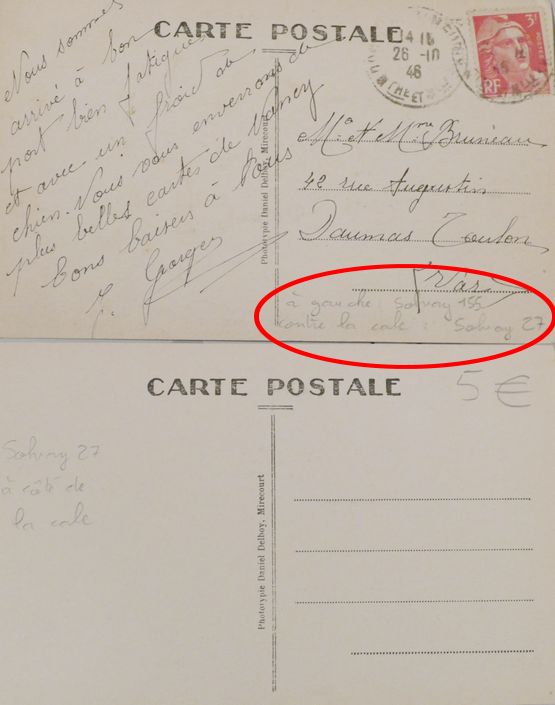 CARTE POSTALE
Nous sommes
arrivé à bon
port bien fatigués
et avec un froid de
chien. Nous vous enverrons de
plus belles cartes de Nancy
bons baisers à tous
Georges
14 H
26-10
46
3F
RF
Mr et Mme Bruneau
42 rue Augustin
Daumas Toulon
Var
Phototypie Daniel Delboy, Mirecourt
à gauche : Solvay 155
contre la cale : Solvay 27
CARTE POSTALE
5 €
Solvay 27
à côté de
la cale
Phototypie Daniel Delboy, Mirecourt